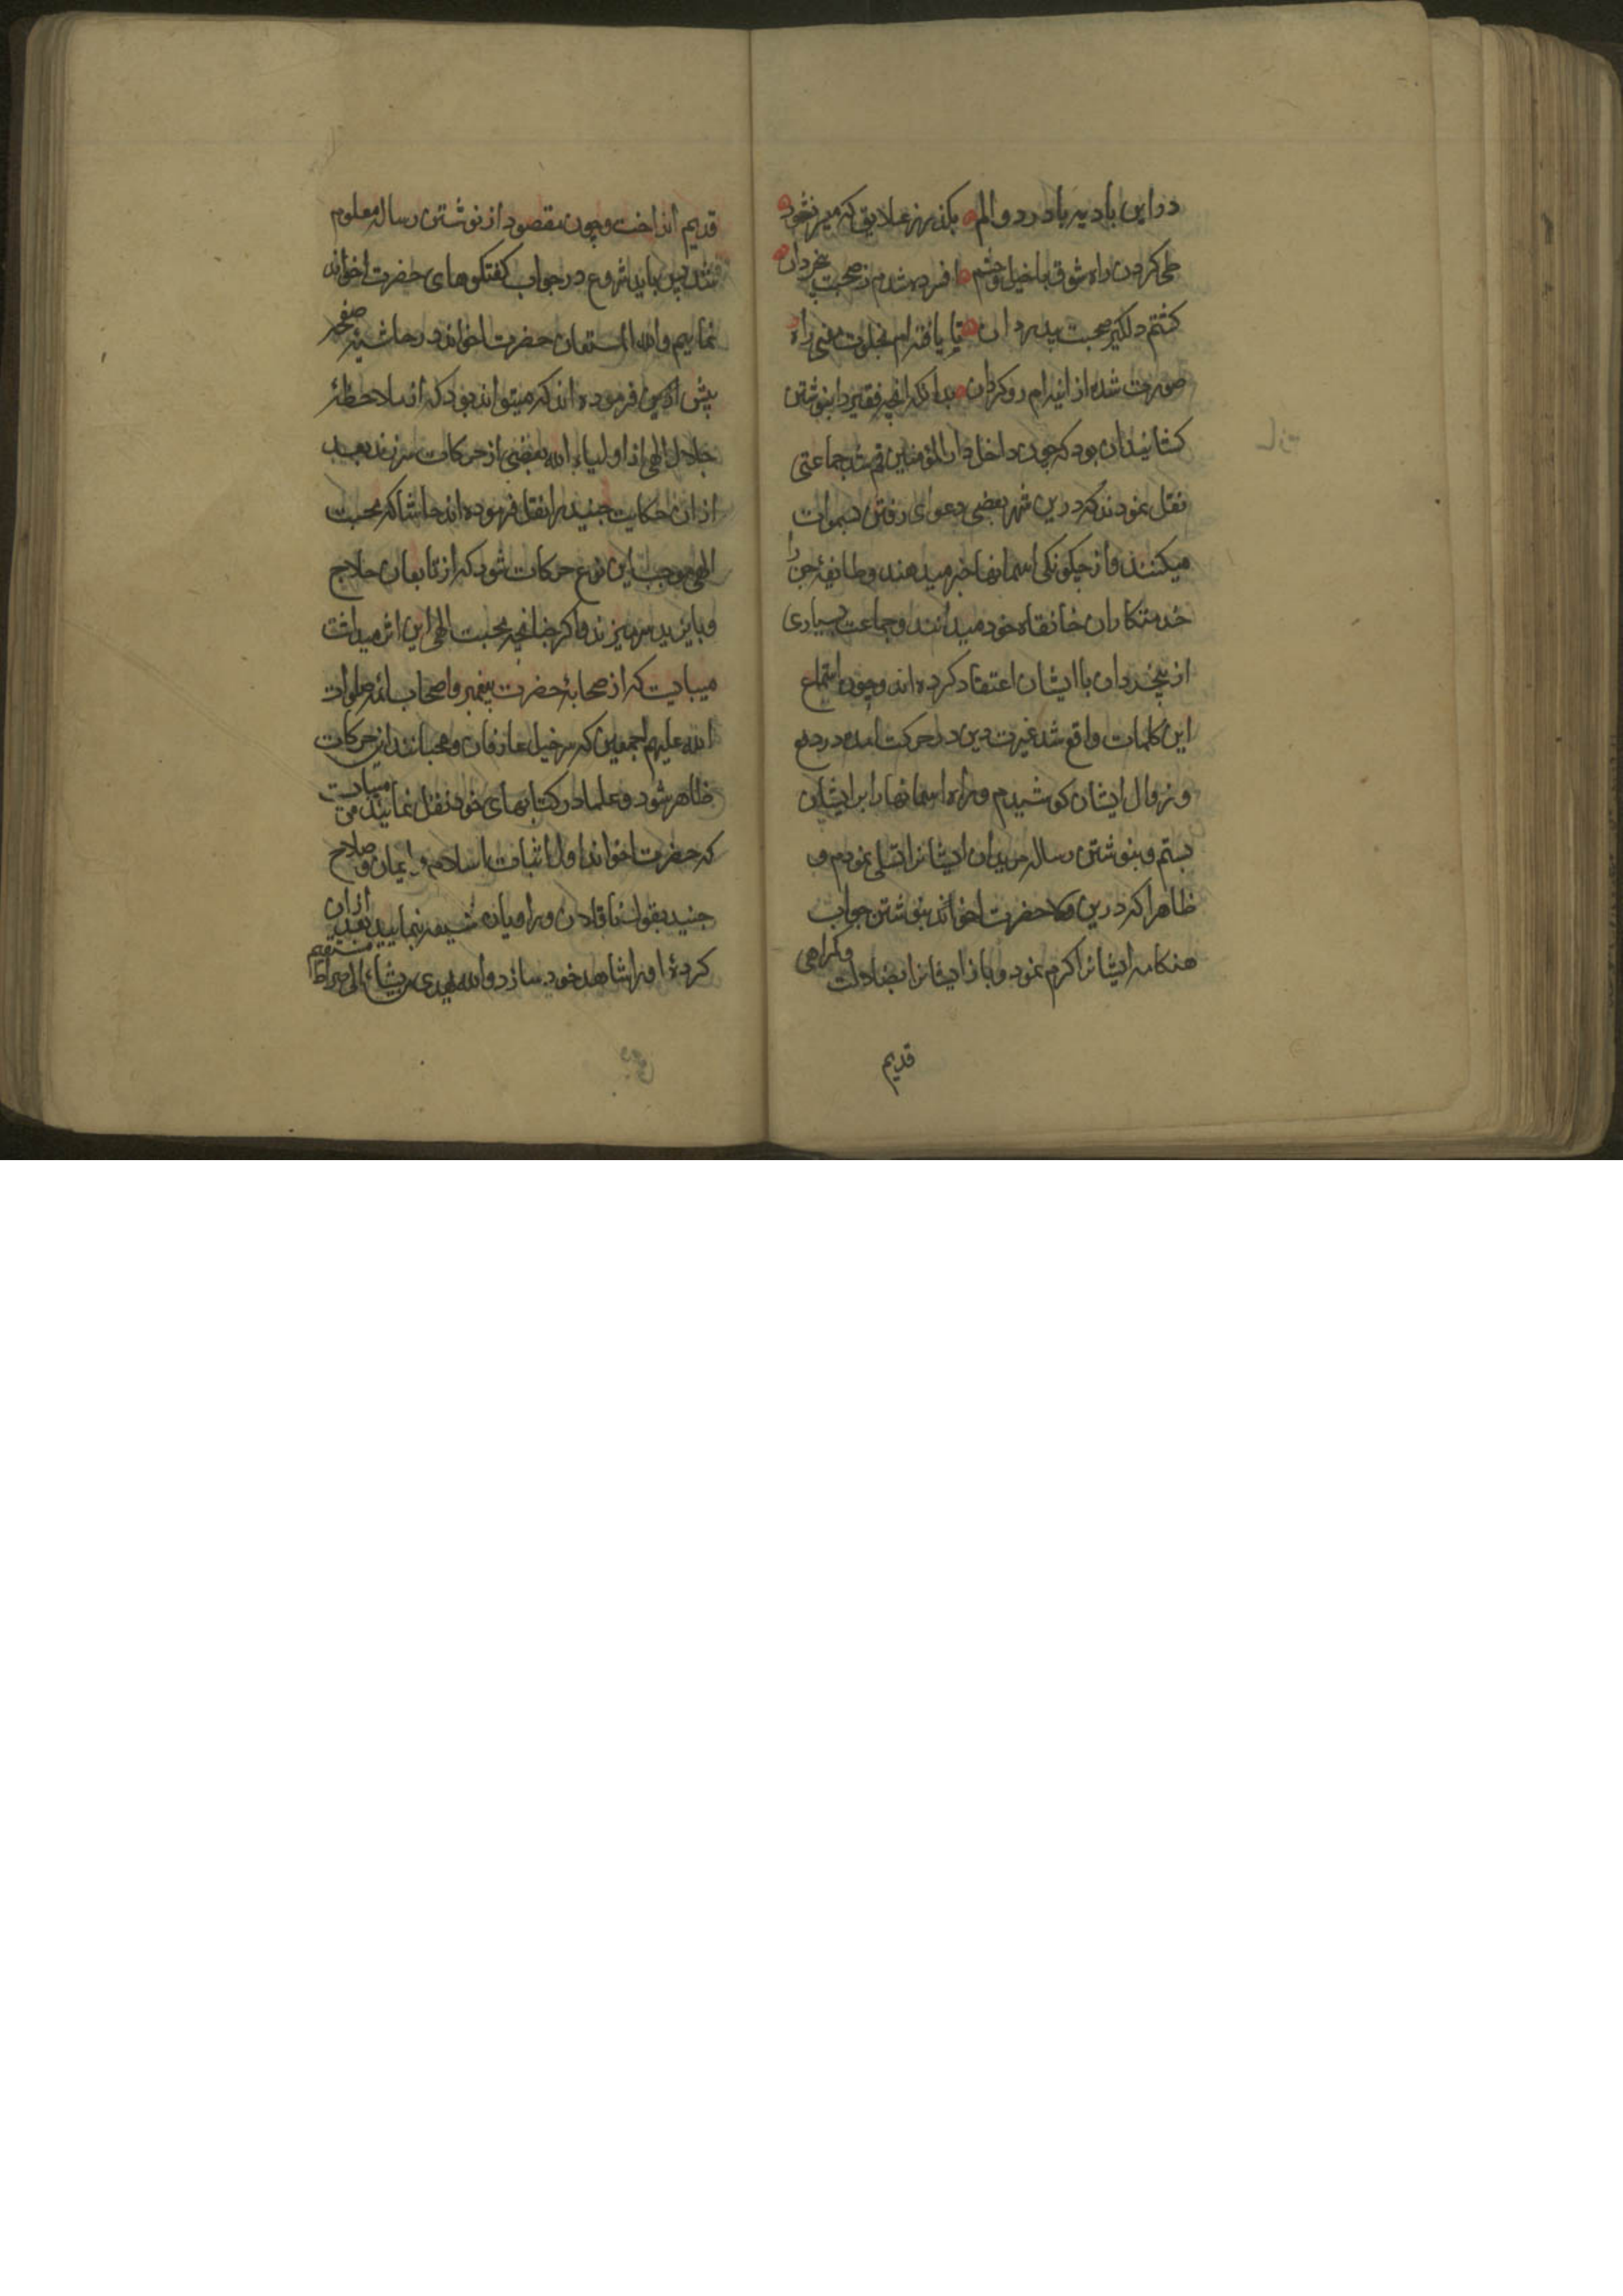 در این بادیه یا درد و الم بکذر ز علایقی که میر نشود
طی کردن راه شوق با خیل و حشم افسرده شدم ز صحبت بیخردان
کشتم دلکیر صحبت بیدردان تا یافته‌ام بخلوت معنی راه
صورت شده از انیدام رو کردان بدانکه انچه فقیر را بنوشتن
کشانید ان بود که چون داخل دار المؤمنین قم شد جماعتی
نقل نمودند که درین شهر بعضی دعوای رفتن بسموات
میکنند و از چکونکی اسمانها خبر میدهند و طایفۀ جن را
خدمتکاران خانقاه خود میدانند و جماعت بسیاری
از بیخردان با ایشان اعتقاد کرده‌اند و چون استماع
این کلمات واقع شد غیرت دین در حرکت امده در دفع
و زوال ایشان کوشیدم و راه اسمانها را بر ایشان
بستم و بنوشتن رساله مریدان ایشانرا تسلی نمودم و
ظاهرا که درین ولا حضرت اخواند بنوشتن جواب
هنکامه ایشانرا کرم نمود و باز ایشانرا بضلالت و کمراهی
قدیم
قدیم انداخت و چون مقصود از نوشتن رساله معلوم
شد پس باید شروع در جواب کفتکوهای حضرت اخواند
نماییم والله المستعان حضرت اخواند در حاشیه صفحه
پیش ازین فرموده‌اند که میتواند بود که از ملاحظۀ
جلال الهی از اولیاء الله بعضی از حرکات سرزند و بعد
از ان حکایت جنید را نقل فرموده‌اند حاشا که محبت
الهی موجب این نوع حرکات شود که از تابعان حلاج
و بایزید سر میزند و اکر چنانچه محبت الهی این اثر میداشت
میبایست که از صحابۀ حضرت پیغمبر و اصحاب ائمه صلوات
الله علیهم اجمعین که سرخیل عارفان و محبانند این حرکات
ظاهر شود و علما در کتابهای خود نقل نمایند میبایست
که حضرت اخواند اول اثبات اسلام و ایمان و صلاح
جنید بقول ناقلان و راویان شیعه بنمایید بعد از ان
کردۀ او را شاهد خود سازد والله یهدی من یشاء الی صراط مستقیم